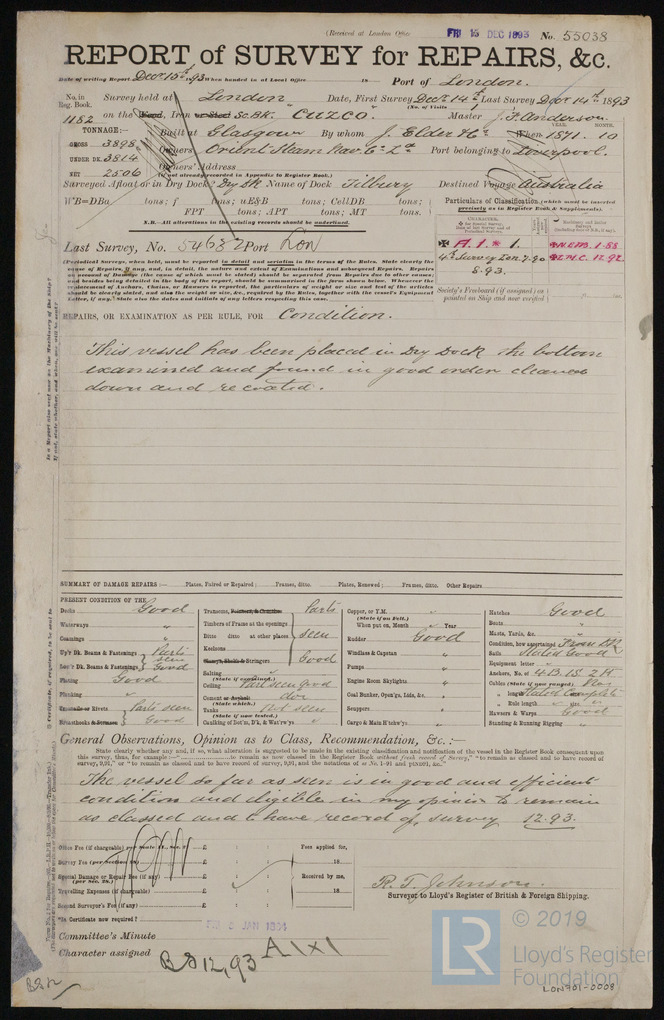 (Received at London Office
FRI 15 DEC 1893 No. 55038
REPORT of SURVEY for REPAIRS, &c.
Date of writing Report Decr 15th 1893 When handed in at Local Office 18 Port of London.
No. in Reg. Book. Survey held at London Date, First Survey Decr 14th Last Survey Decr 14th 1893
(No. of Visits
1182 on the Wood, Iron or Steel Sc. Bk. "Cuzco." Master J. F. Anderson.
TONNAGE:— Built at Glasgow By whom J. Elder & Co. When 1871. 10
YEAR. MONTH.
GROSS 3898 Owners Orient Steam Nav. Co. Ld. Port belonging to Liverpool.
UNDER DK. 3814 Owners' Address
NET 2506 (if not already recorded in Appendix to Register Book.)
Surveyed Afloat or in Dry Dock? Dry Dk Name of Dock Tilbury Destined Voyage Australia
WB=DBa tons; f tons; uE&B tons; CellDB tons;
FPT tons; APT tons; MT tons.
N.B.—All alterations in the existing records should be underlined.
Particulars of Classification (which must be inserted precisely as in Register Book & Supplements).
Last Survey, No. 54632 Port Lon
CHARACTER.
A.1. 1.
N.E.&B. 1.88
L.M.C. 12.92
4th Survey Lon 7.90
8.93.
Society's Freeboard (if assigned) as painted on Ship and now verified
(Periodical Surveys, when held, must be reported in detail and seriatim in the terms of the Rules. State clearly the
cause of Repairs, if any, and, in detail, the nature and extent of Examinations and subsequent Repairs. Repairs
on account of Damage (the cause of which must be stated) should be separated from Repairs due to other causes;
and besides being detailed in the body of the report, should be summarised in the form shown below. Whenever the
REPAIRS, OR EXAMINATION AS PER RULE, FOR Condition.
This vessel has been placed in Dry Dock the bottom
examined and found in good order cleaned
down and recoated.
SUMMARY OF DAMAGE REPAIRS:— Plates, Faired or Repaired; Frames, ditto. Plates, Renewed; Frames, ditto. Other Repairs
PRESENT CONDITION OF THE
Decks Good
Waterways "
Coamings "
Up'r Dk. Beams & Fastenings Parts seen
Low'r Dk. Beams & Fastenings Good
Plating Good
Planking "
Treenails or Rivets Parts seen
Breasthooks & Stemson Good
Transoms, Pointers, & Crutches Parts
Timbers of Frame at the openings
Ditto ditto at other places seen
Keelsons
Clamps, Shelfs & Stringers Good
Salting (State if examined.)
Ceiling Part seen good
Cement or Asphalt (State which.) do
Tanks (State if now tested.) Not seen
Caulking of Bot'm, D'k, & Wat'rw'ys "
Copper, or Y.M. (State if on Felt.) "
When put on, Month Year
Rudder Good
Windlass & Capstan "
Pumps "
Engine Room Skylights "
Coal Bunker, Open'gs, Lids, &c. "
Scuppers "
Cargo & Main H'tchw'ys "
Hatches Good
Boats "
Masts, Yards, &c. "
Condition, how ascertained From Dk
Sails Stated Good
Equipment letter
Anchors, No. of 4B. 1S. 2K
Cables (State if now ranged.) No
" length Stated Complete
" Rule length
Hawsers & Warps Good
Standing & Running Rigging "
General Observations, Opinion as to Class, Recommendation, &c.:—
State clearly whether any, and if so, what alteration is suggested to be made in the existing classification and notification of the vessel in the Register Book consequent upon
this survey, thus, for example:—" to remain as now classed in the Register Book without fresh record of Survey," "to remain as classed and to have record of
The vessel so far as seen is in good and efficient
condition and eligible in my opinion to remain
as classed and to have record of survey 12.93.
Office Fee (if chargeable) £ : : Fees applied for,
Survey Fee £ : : 18
Special Damage or Repair Fee (if any) £ : : Received by me,
Travelling Expenses (if chargeable) £ : : 18
Second Surveyor's Fee (if any) £ : :
R. T. Johnson.
Surveyor to Lloyd's Register of British & Foreign Shipping.
*Is Certificate now required?
JAN 1894
Committee's Minute
Character assigned BS 12,93 A1x1
LR
© 2019
Lloyd's Register
Foundation
LON901-0008